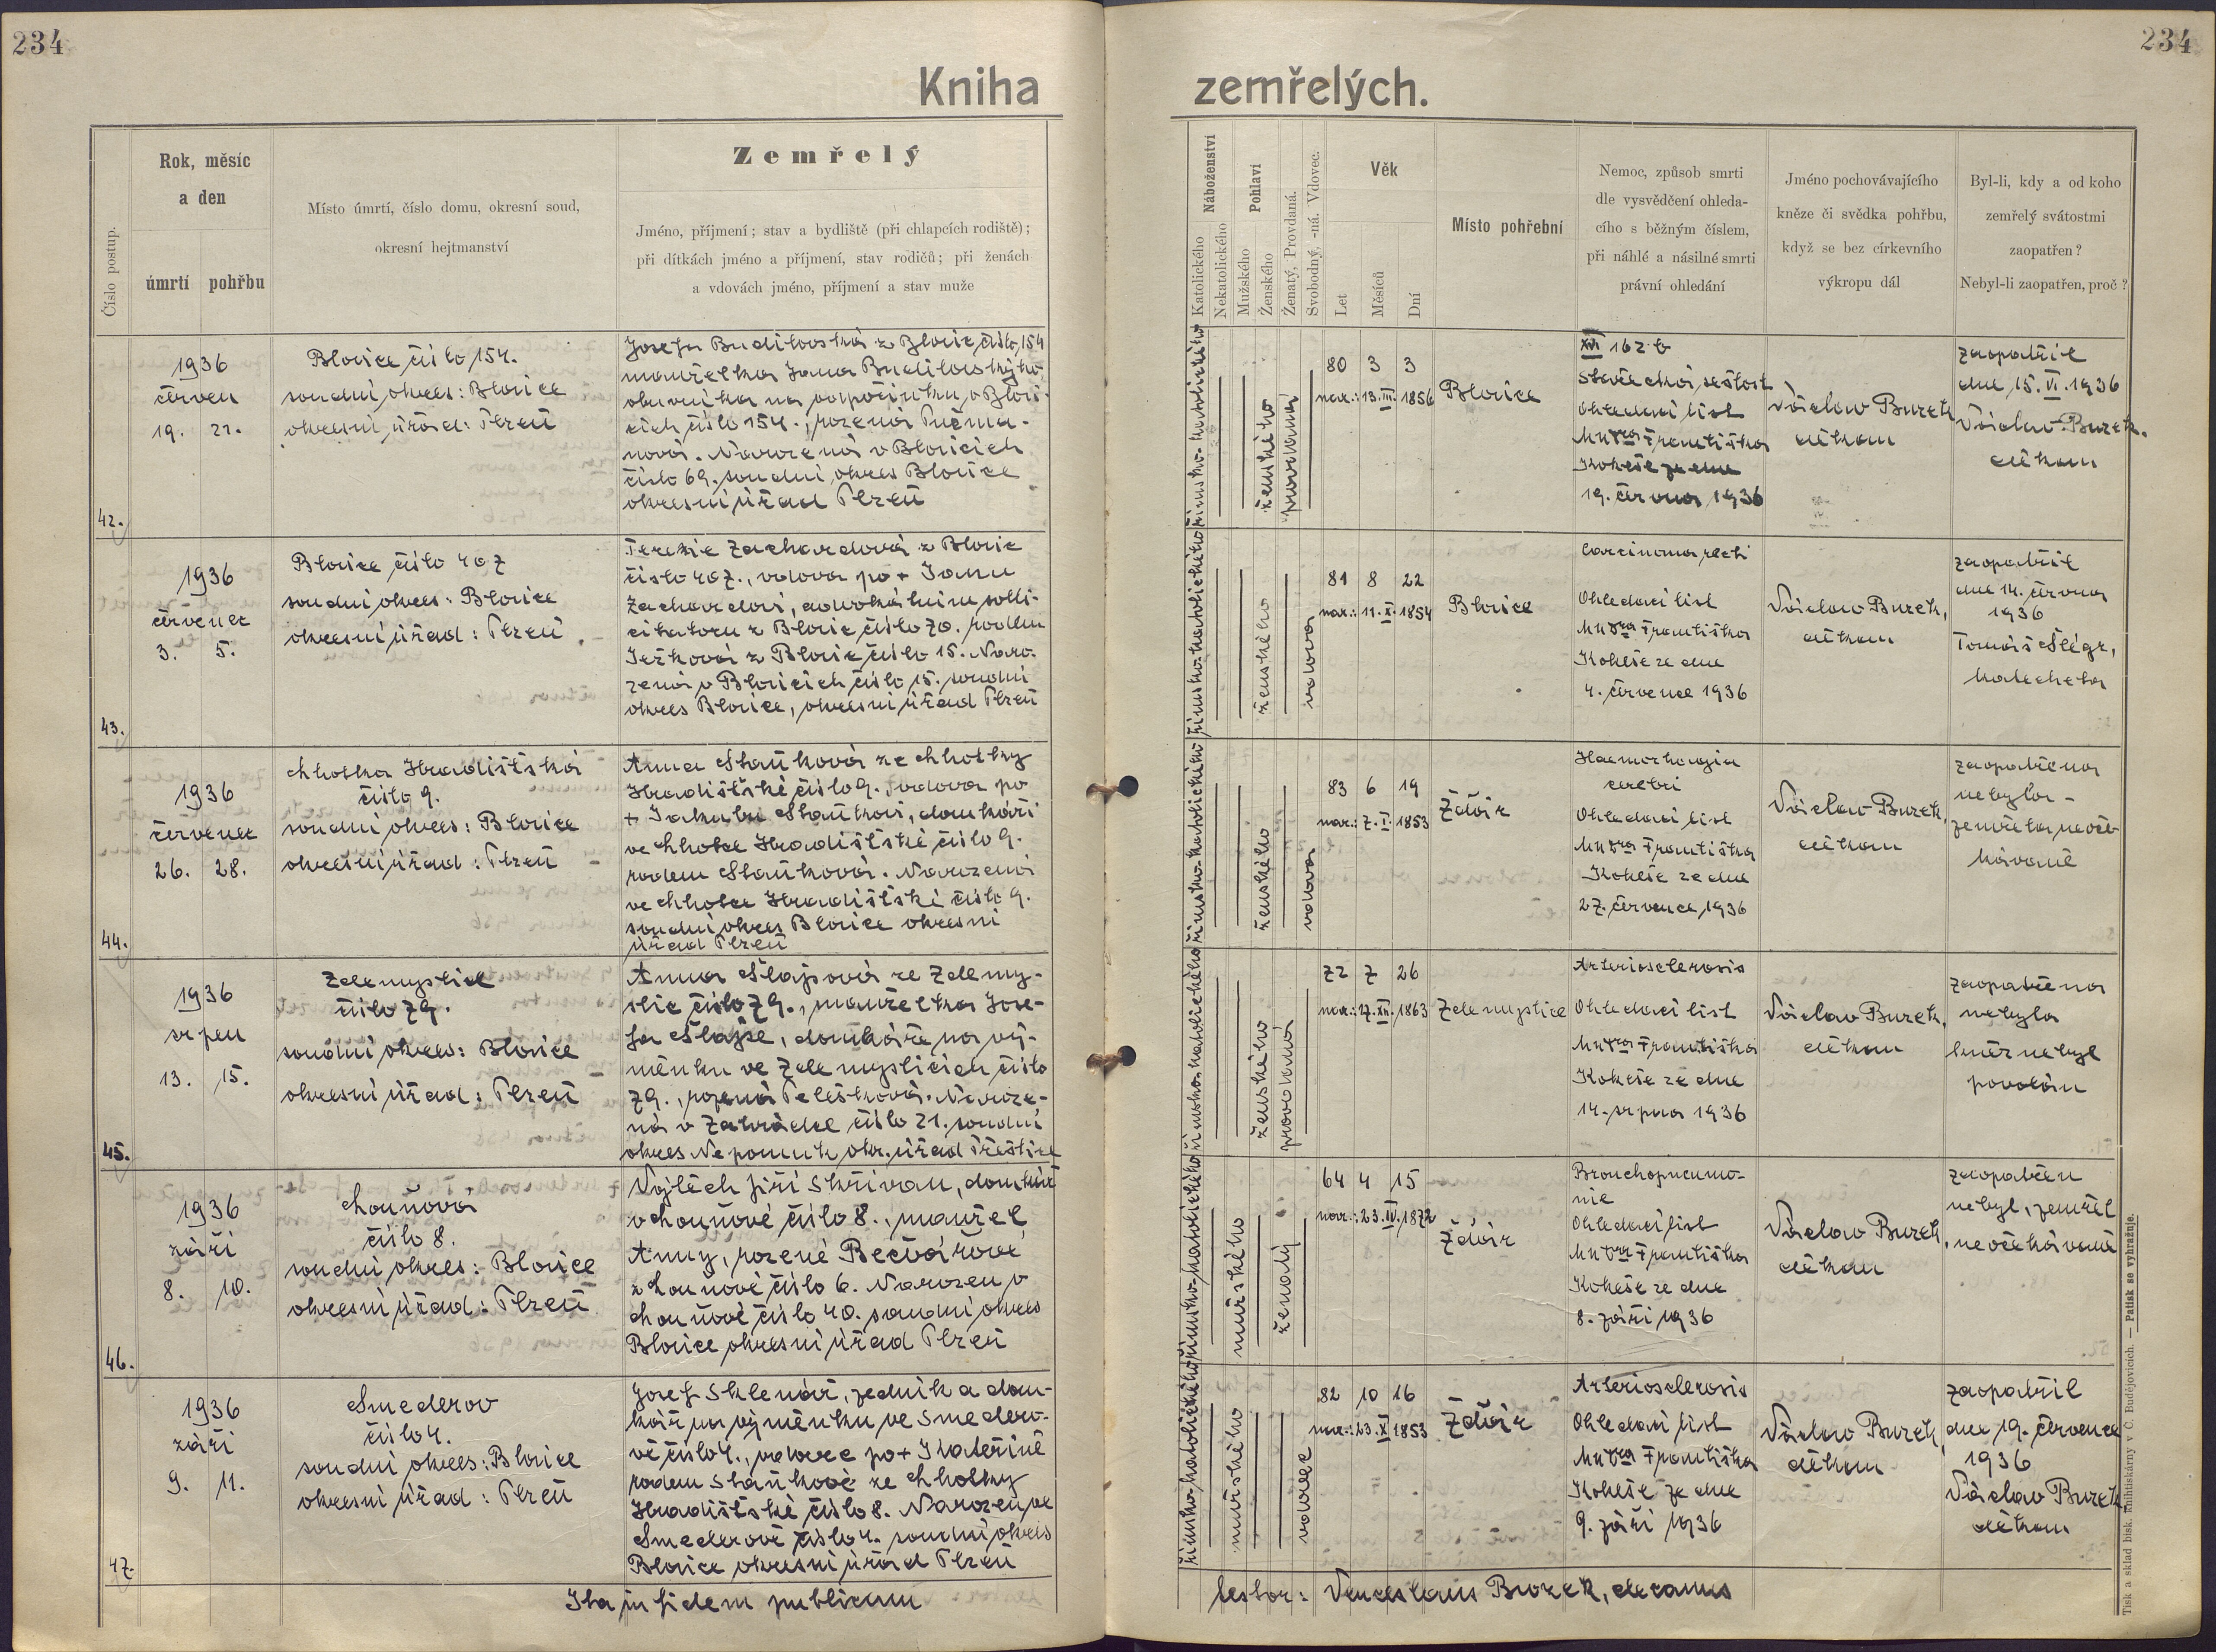 234
234
Kniha zemřelých.
Číslo postup.
Rok, měsíc
a den
úmrtí pohřbu
Místo úmrtí, číslo domu, okresní soud,
okresní hejtmanství
Zemřelý
Jméno, příjmení; stav a bydliště (při chlapcích rodiště);
při dítkách jméno a příjmení, stav rodičů; při ženách
a vdovách jméno, příjmení a stav muže
Náboženství
Katolického
Nekatolického
Pohlaví
Mužského
Ženského
Ženatý, Provdaná.
Svobodný, -ná. Vdovec.
Věk
Let
Měsíců
Dní
Místo pohřební
Nemoc, způsob smrti
dle vysvědčení ohleda-
cího s běžným číslem,
při náhlé a násilné smrti
právní ohledání
Jméno pochovávajícího
kněze či svědka pohřbu,
když se bez církevního
výkropu dál
Byl-li, kdy a od koho
zemřelý svátostmi
zaopatřen?
Nebyl-li zaopatřen, proč?
42.
1936
červen
19. 21.
Blovice číslo 154.
soudní okres: Blovice
okresní úřad: Plzeň
Josefa Budilovská z Blovic číslo 154
manželka Jana Budilovského
obuvníka na odpočinku v Blovi-
cích číslo 154., rozená
nová. Narozená v Blovicích
číslo 69. soudní okres Blovice
okresní úřad Plzeň
římsko-katolického
ženského
provdaná
80 3 3
nar.: 13. III. 1856
Blovice
XVI 162 b
Stařecká sešlost
Ohledací list
MUDra Františka
Kokeše ze dne
19. června 1936
Václav Burek,
děkan
zaopatřil
dne 15. VI. 1936
Václav Burek,
děkan
43.
1936
červenec
3. 5.
Blovice číslo 407
soudní okres: Blovice
okresní úřad: Plzeň
Terezie Zachardová z Blovic
číslo 407., vdova po + Janu
Zachardovi, advokátním solli-
citatoru z Blovic číslo 70. rodem
Ježková z Blovic číslo 15. Naro-
zená v Blovicích číslo 15. soudní
okres Blovice, okresní úřad Plzeň
římsko-katolického
ženského
vdova
81 8 22
nar.: 11. X. 1854
Blovice
Carcinoma recti
Ohledací list
MUDra Františka
Kokeše ze dne
4. července 1936
Václav Burek,
děkan
zaopatřil
dne 14. června
1936
Tomáš Šlégr,
katecheta
44.
1936
červenec
26. 28.
Lhotka Hradišťská
číslo 9.
soudní okres: Blovice
okresní úřad: Plzeň
Anna Staňková ze Lhotky
Hradišťské číslo 9. vdova po
+ Jakubu Staňkovi, domkáři
ve Lhotce Hradišťské číslo 9.
rodem Staňková. Narozená
ve Lhotce Hradišťské číslo 9.
soudní okres Blovice okresní
úřad Plzeň
římsko-katolického
ženského
vdova
83 6 19
nar.: 7. I. 1853
Ždár
Haemorrhagia
cerebri
Ohledací list
MUDra Františka
Kokeše ze dne
27. července 1936
Václav Burek,
děkan
zaopatřena
nebyla -
zemřela neoče-
kávaně
45.
1936
srpen
13. 15.
Zdemyslice
číslo 79.
soudní okres: Blovice
okresní úřad: Plzeň
Anna Šlajsová ze Zdemy-
slic číslo 79., manželka Jose-
fa Šlajse, domkáře na vý-
měnku ve Zdemyslicích číslo
79., rozená Pelíšková. Naroze-
ná v Zahrádce číslo 21. soudní
okres Nepomuk okr. úřad Přeštice
římsko-katolického
ženského
provdaná
72 7 26
nar.: 17. XII. 1863
Zdemyslice
Arteriosclerosis
Ohledací list
MUDra Františka
Kokeše ze dne
14. srpna 1936
Václav Burek,
děkan
zaopatřena
nebyla
kněz nebyl
povolán
46.
1936
září
8. 10.
Louňová
číslo 8.
soudní okres: Blovice
okresní úřad: Plzeň
Vojtěch Jiří Skřivan, domkář
v Louňové číslo 8., manžel
Anny, rozené Bečvářové
z Louňové číslo 6. Narozen v
Louňové číslo 40. soudní okres
Blovice okresní úřad Plzeň
římsko-katolického
mužského
ženatý
64 4 15
nar.: 23. IV. 1872
Ždár
Bronchopneumo-
nie
Ohledací list
MUDra Františka
Kokeše ze dne
8. září 1936
Václav Burek,
děkan
zaopatřen
nebyl, zemřel
neočekávaně
47.
1936
září
9. 11.
Smederov
číslo 4.
soudní okres: Blovice
okresní úřad: Plzeň
Josef Sklenář, zedník a dom-
kář na výměnku ve Smedero-
vě číslo 4., vdovec po + Kateřině
rodem Staňkové ze Lhotky
Hradišťské číslo 8. Narozen ve
Smederově číslo 4. soudní okres
Blovice okresní úřad Plzeň
římsko-katolického
mužského
vdovec
82 10 16
nar.: 23. X. 1853
Ždár
Arteriosclerosis
Ohledací list
MUDra Františka
Kokeše ze dne
9. září 1936
Václav Burek,
děkan
zaopatřil
dne 19. července
1936
Václav Burek,
děkan
Ita in fidem publicam
testor: Venceslaus Burek, decanus
Tisk a sklad bisk. knihtiskárny v Č. Budějovicích. — Patisk se vyhražuje.